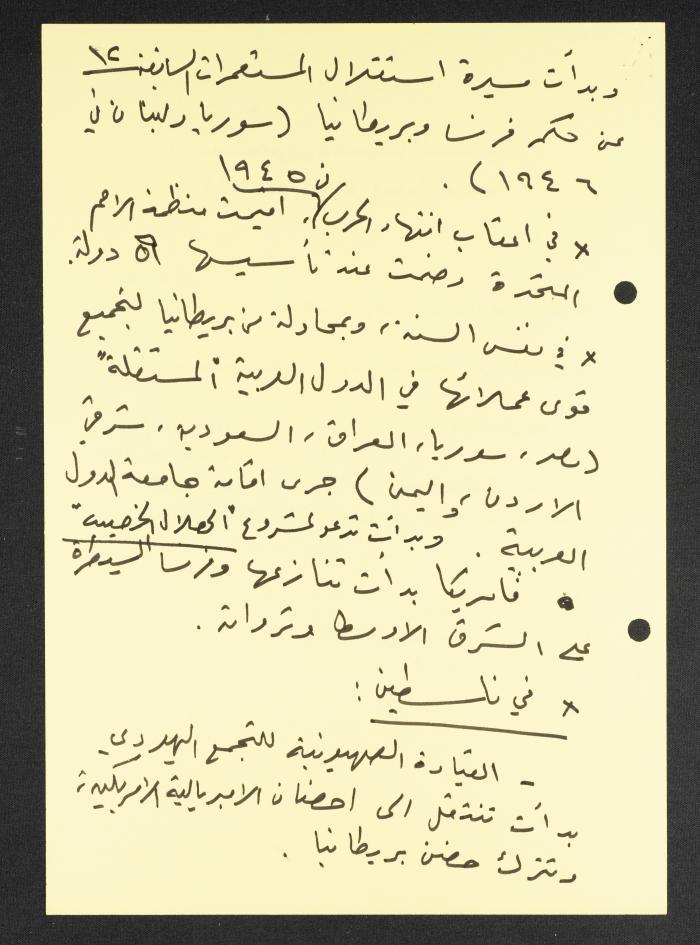 وبدأت مسيرة استقلال المستعمرات السابقة
من حكم فرنسا وبريطانيا (سوريا ولبنان في
١٩٤٦).
× في اعقاب انتهاء الحرب، في ١٩٤٥ اقيمت منظمة الامم
المتحدة وضمت عند تأسيسها ٥١ دولة.
× في نفس السنة، وبمحاولة من بريطانيا لتجميع
قوى عملائها في الدول العربية "المستقلة"
(مصر، سوريا، العراق، السعودية، شرقي
الاردن، واليمن) جرى اقامة جامعة الدول
العربية. وبدأت تدعو لمشروع "الهلال الخصيب"
• فأمريكا بدأت تنازعها وفرنسا السيطرة
على الشرق الاوسط وثرواته.
× في فلسطين:
- القيادة الصهيونية للتجمع اليهودي
بدأت تنتقل الى احضان الامبريالية الامريكية،
وتترك حضن بريطانيا.